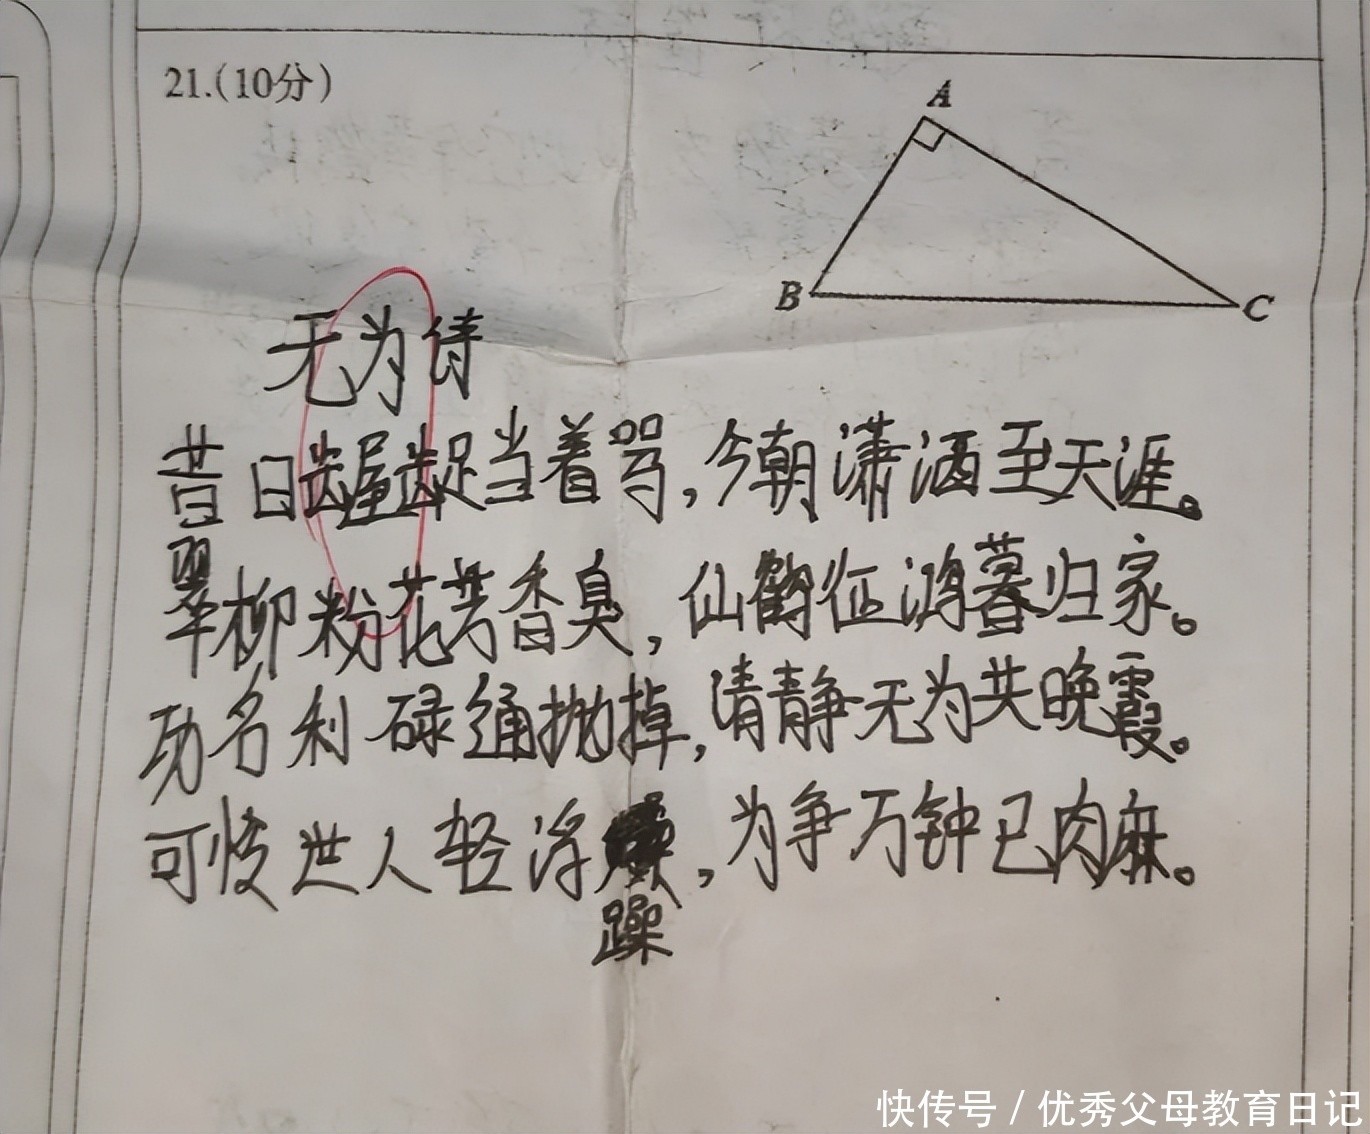 21.(10分)
A
B
C
无为诗
昔日龌龊当着骂,今朝潇洒至天涯。
翠柳粉花芳香臭,仙鹤征鸿暮归家。
功名利碌通抛掉,清静无为共晚霞。
可悛世人轻浮,为争万钟已肉麻。
躁
快传号/优秀父母教育日记